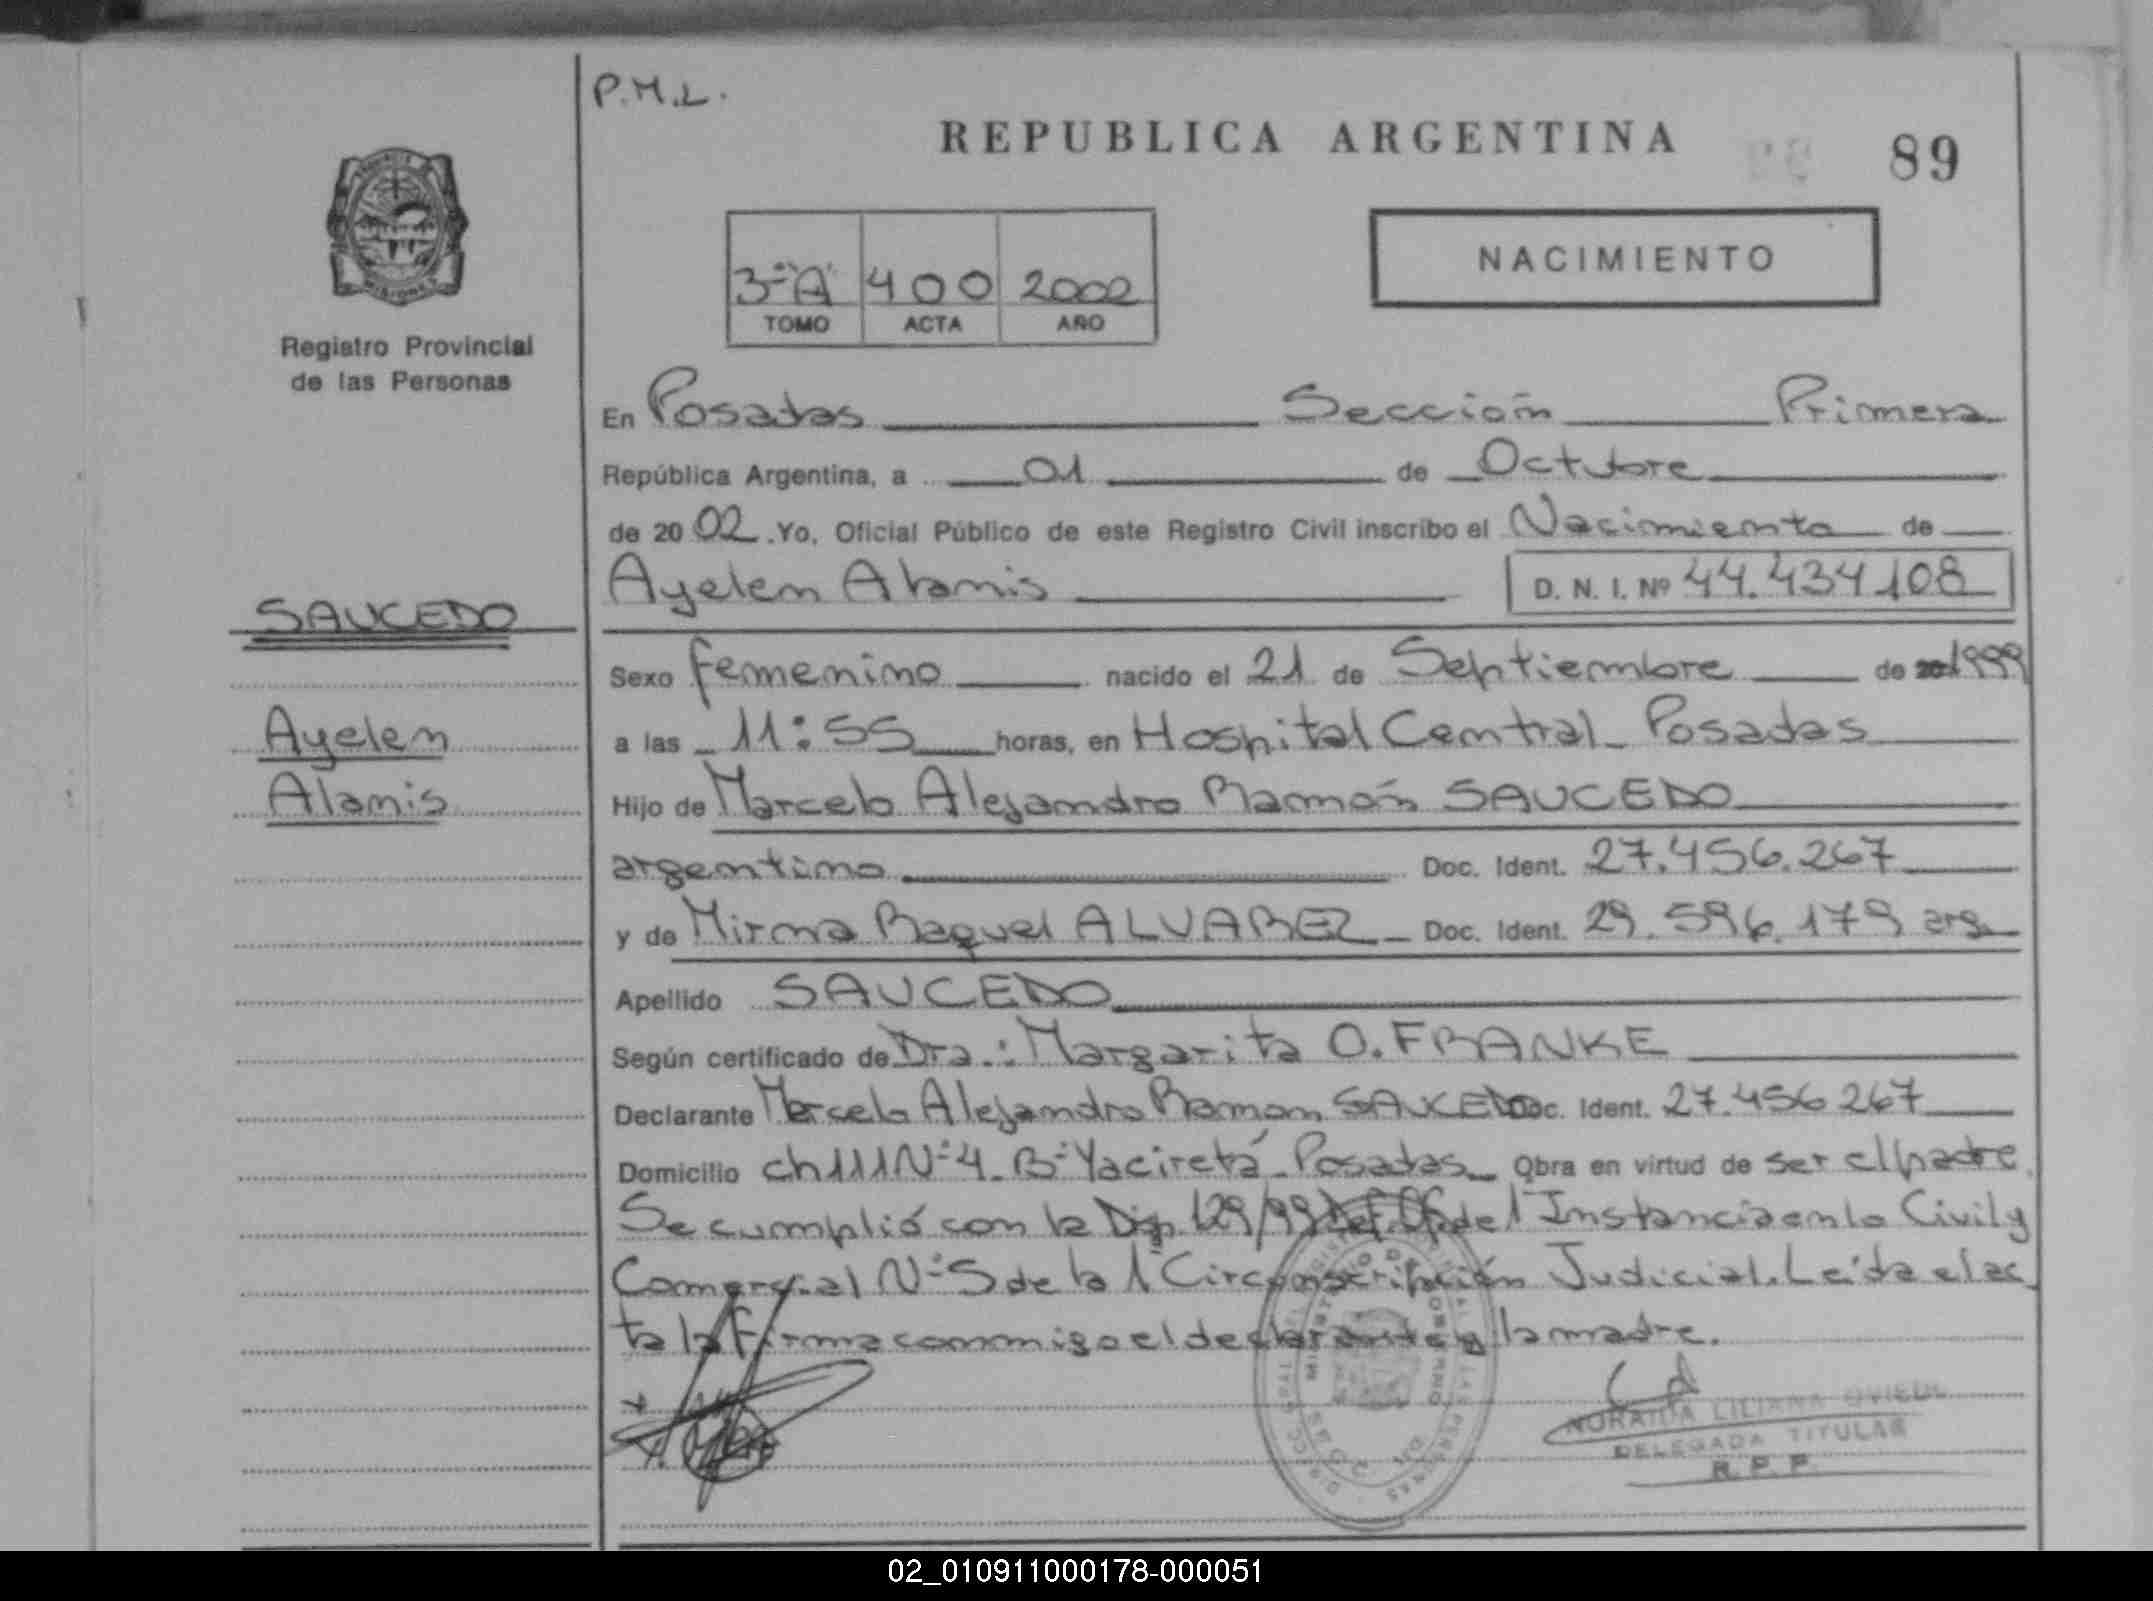 P.M.L.
REPUBLICA ARGENTINA
89
MISIONES
Registro Provincial
de las Personas
3º "A" 400 2002
TOMO ACTA AÑO
NACIMIENTO
En Posadas Sección Primera
República Argentina, a 01 de Octubre
de 2002. Yo, Oficial Público de este Registro Civil inscribo el Nacimiento de
Ayelen Alanis D. N. I. Nº 44.434.108
SAUCEDO
Ayelen
Alanis
Sexo femenino nacido el 21 de Septiembre de 1999
a las 11:55 horas, en Hospital Central - Posadas
Hijo de Marcelo Alejandro Ramón SAUCEDO
argentino Doc. Ident. 27.456.267
y de Mirna Raquel ALVAREZ - Doc. Ident. 29.596.179 arg.
Apellido SAUCEDO
Según certificado de Dra.: Margarita O. FRANKE
Declarante Marcelo Alejandro Ramon SAUCEDO Doc. Ident. 27.456.267
Domicilio ch 111 Nº 4 - Bº Yaciretá - Posadas - Obra en virtud de ser el padre.
Se cumplió con la Disp. 129/99 de 1ª Instancia en lo Civil y
Comercial Nº 5 de la 1ª Circunscripción Judicial. Leída el ac
ta la firma conmigo el declarante y la madre.
NORAIDA LILIANA OVIEDO
DELEGADA TITULAR
R. P. P.
02_010911000178-000051